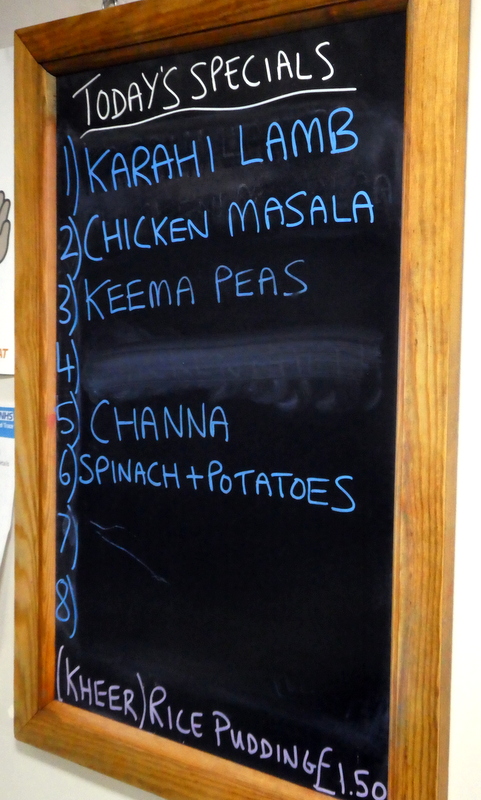 TODAY'S SPECIALS
1) KARAHI LAMB
2) CHICKEN MASALA
3) KEEMA PEAS
4)
5) CHANNA
6) SPINACH + POTATOES
7)
8)
(KHEER) RICE PUDDING £1.50
NHS